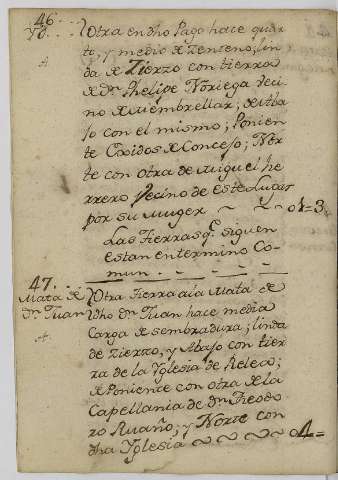 46.
Yo... Otra en dho Pago hace quar
to, y medio de Zenteno; lin
A da de Zierzo con tierra
de Dn. Phelipe Noriega veci
no de Membrellar; de Aba
jo con el mismo; Ponien
te Exidos de Concejo; Nor
te con otra de Miguel he
rrero Vecino de este Lugar
por su Muger ~ ~ ~ 01=3
Las Tierras q.e siguen
estan en termino Co-
mun.
47.
Mata de Otra Tierra a la Mata de
Dn. Juan dho Dn. Juan hace media
Carga de sembradura; linda
A de Zierzo, y Abajo con tier
rra de la Yglesia de Relea;
de Poniente con otra de la
Capellania de Dn. Theodo
ro Ruaño; y Norte con
dha Yglesia ~ ~ ~ ~ 04=